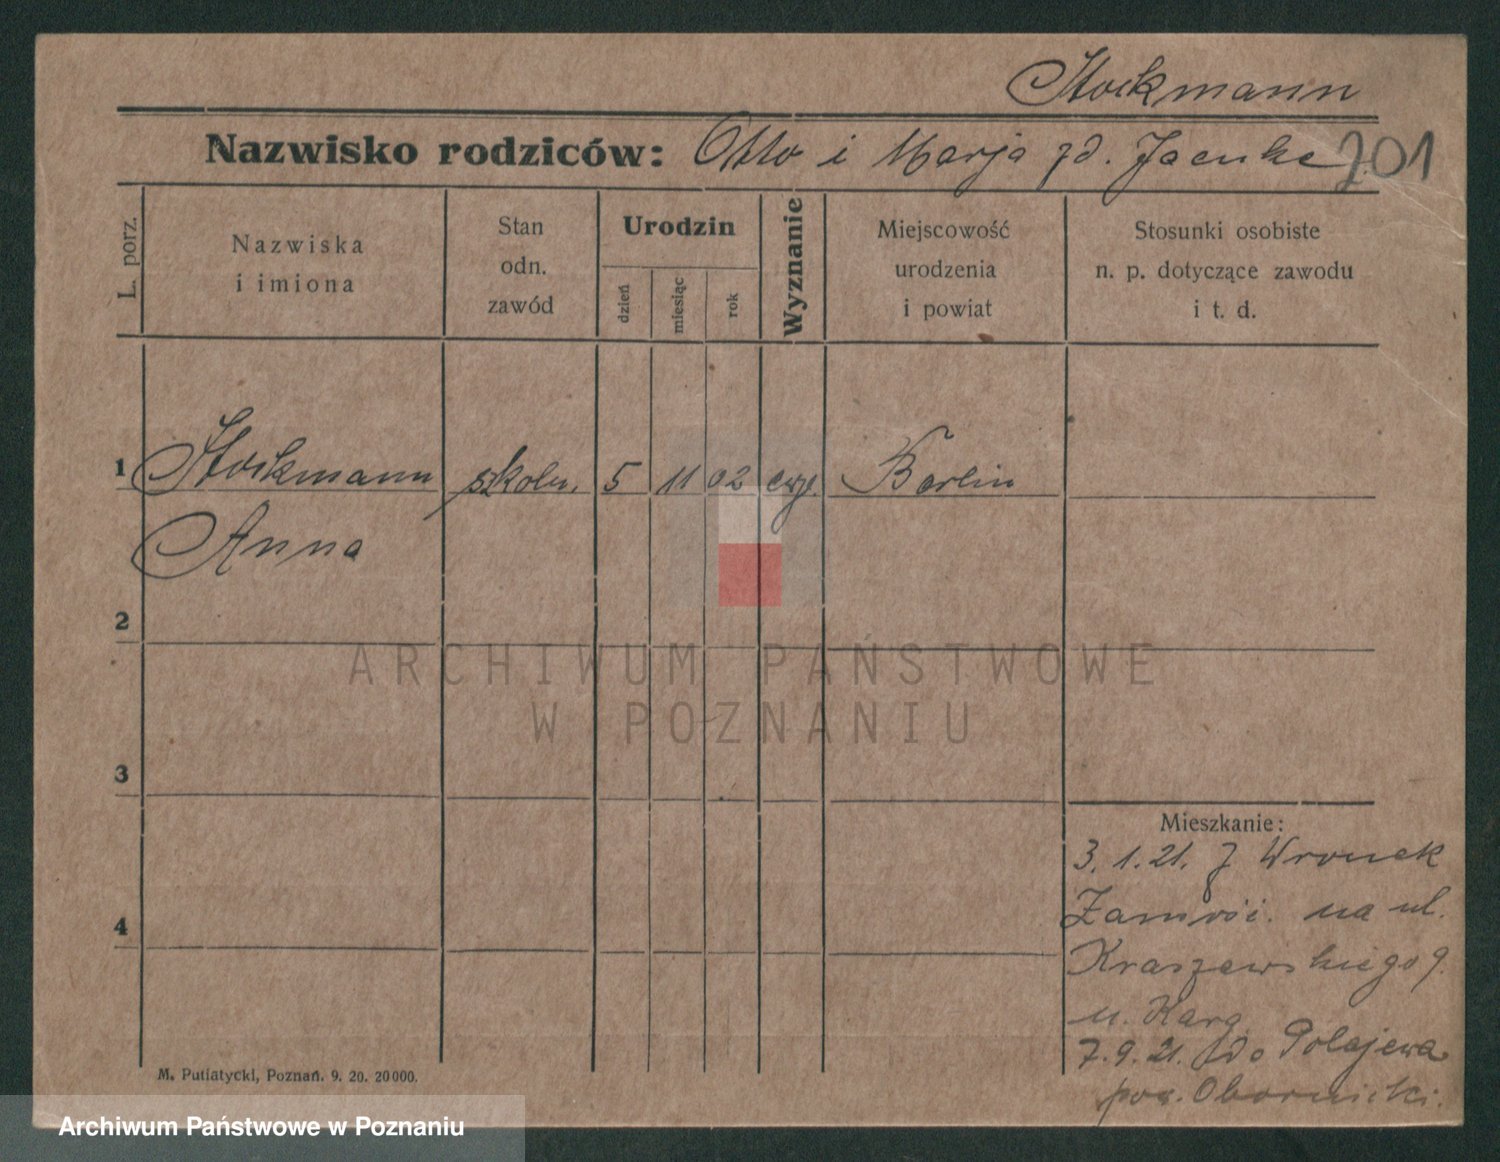 Stockmann
Nazwisko rodziców: Otto i Marja zd. Jaenke 201
L. porz.
Nazwiska
i imiona
Stan
odn.
zawód
Urodzin
dzień
miesiąc
rok
Wyznanie
Miejscowość
urodzenia
i powiat
Stosunki osobiste
n. p. dotyczące zawodu
i t. d.
1 Stockmann szkoln. 5 11 02 ewg. Berlin
Anna
2
ARCHIWUM PAŃSTWOWE
W POZNANIU
3
Mieszkanie:
3.1.21. z Wronek
4
Zamości. na ul.
Kraszewskiego 9.
u. Karg
7.9.21. do Połajewa
pow. Obornicki.
M. Putiatycki, Poznań. 9. 20. 20000.
Archiwum Państwowe w Poznaniu